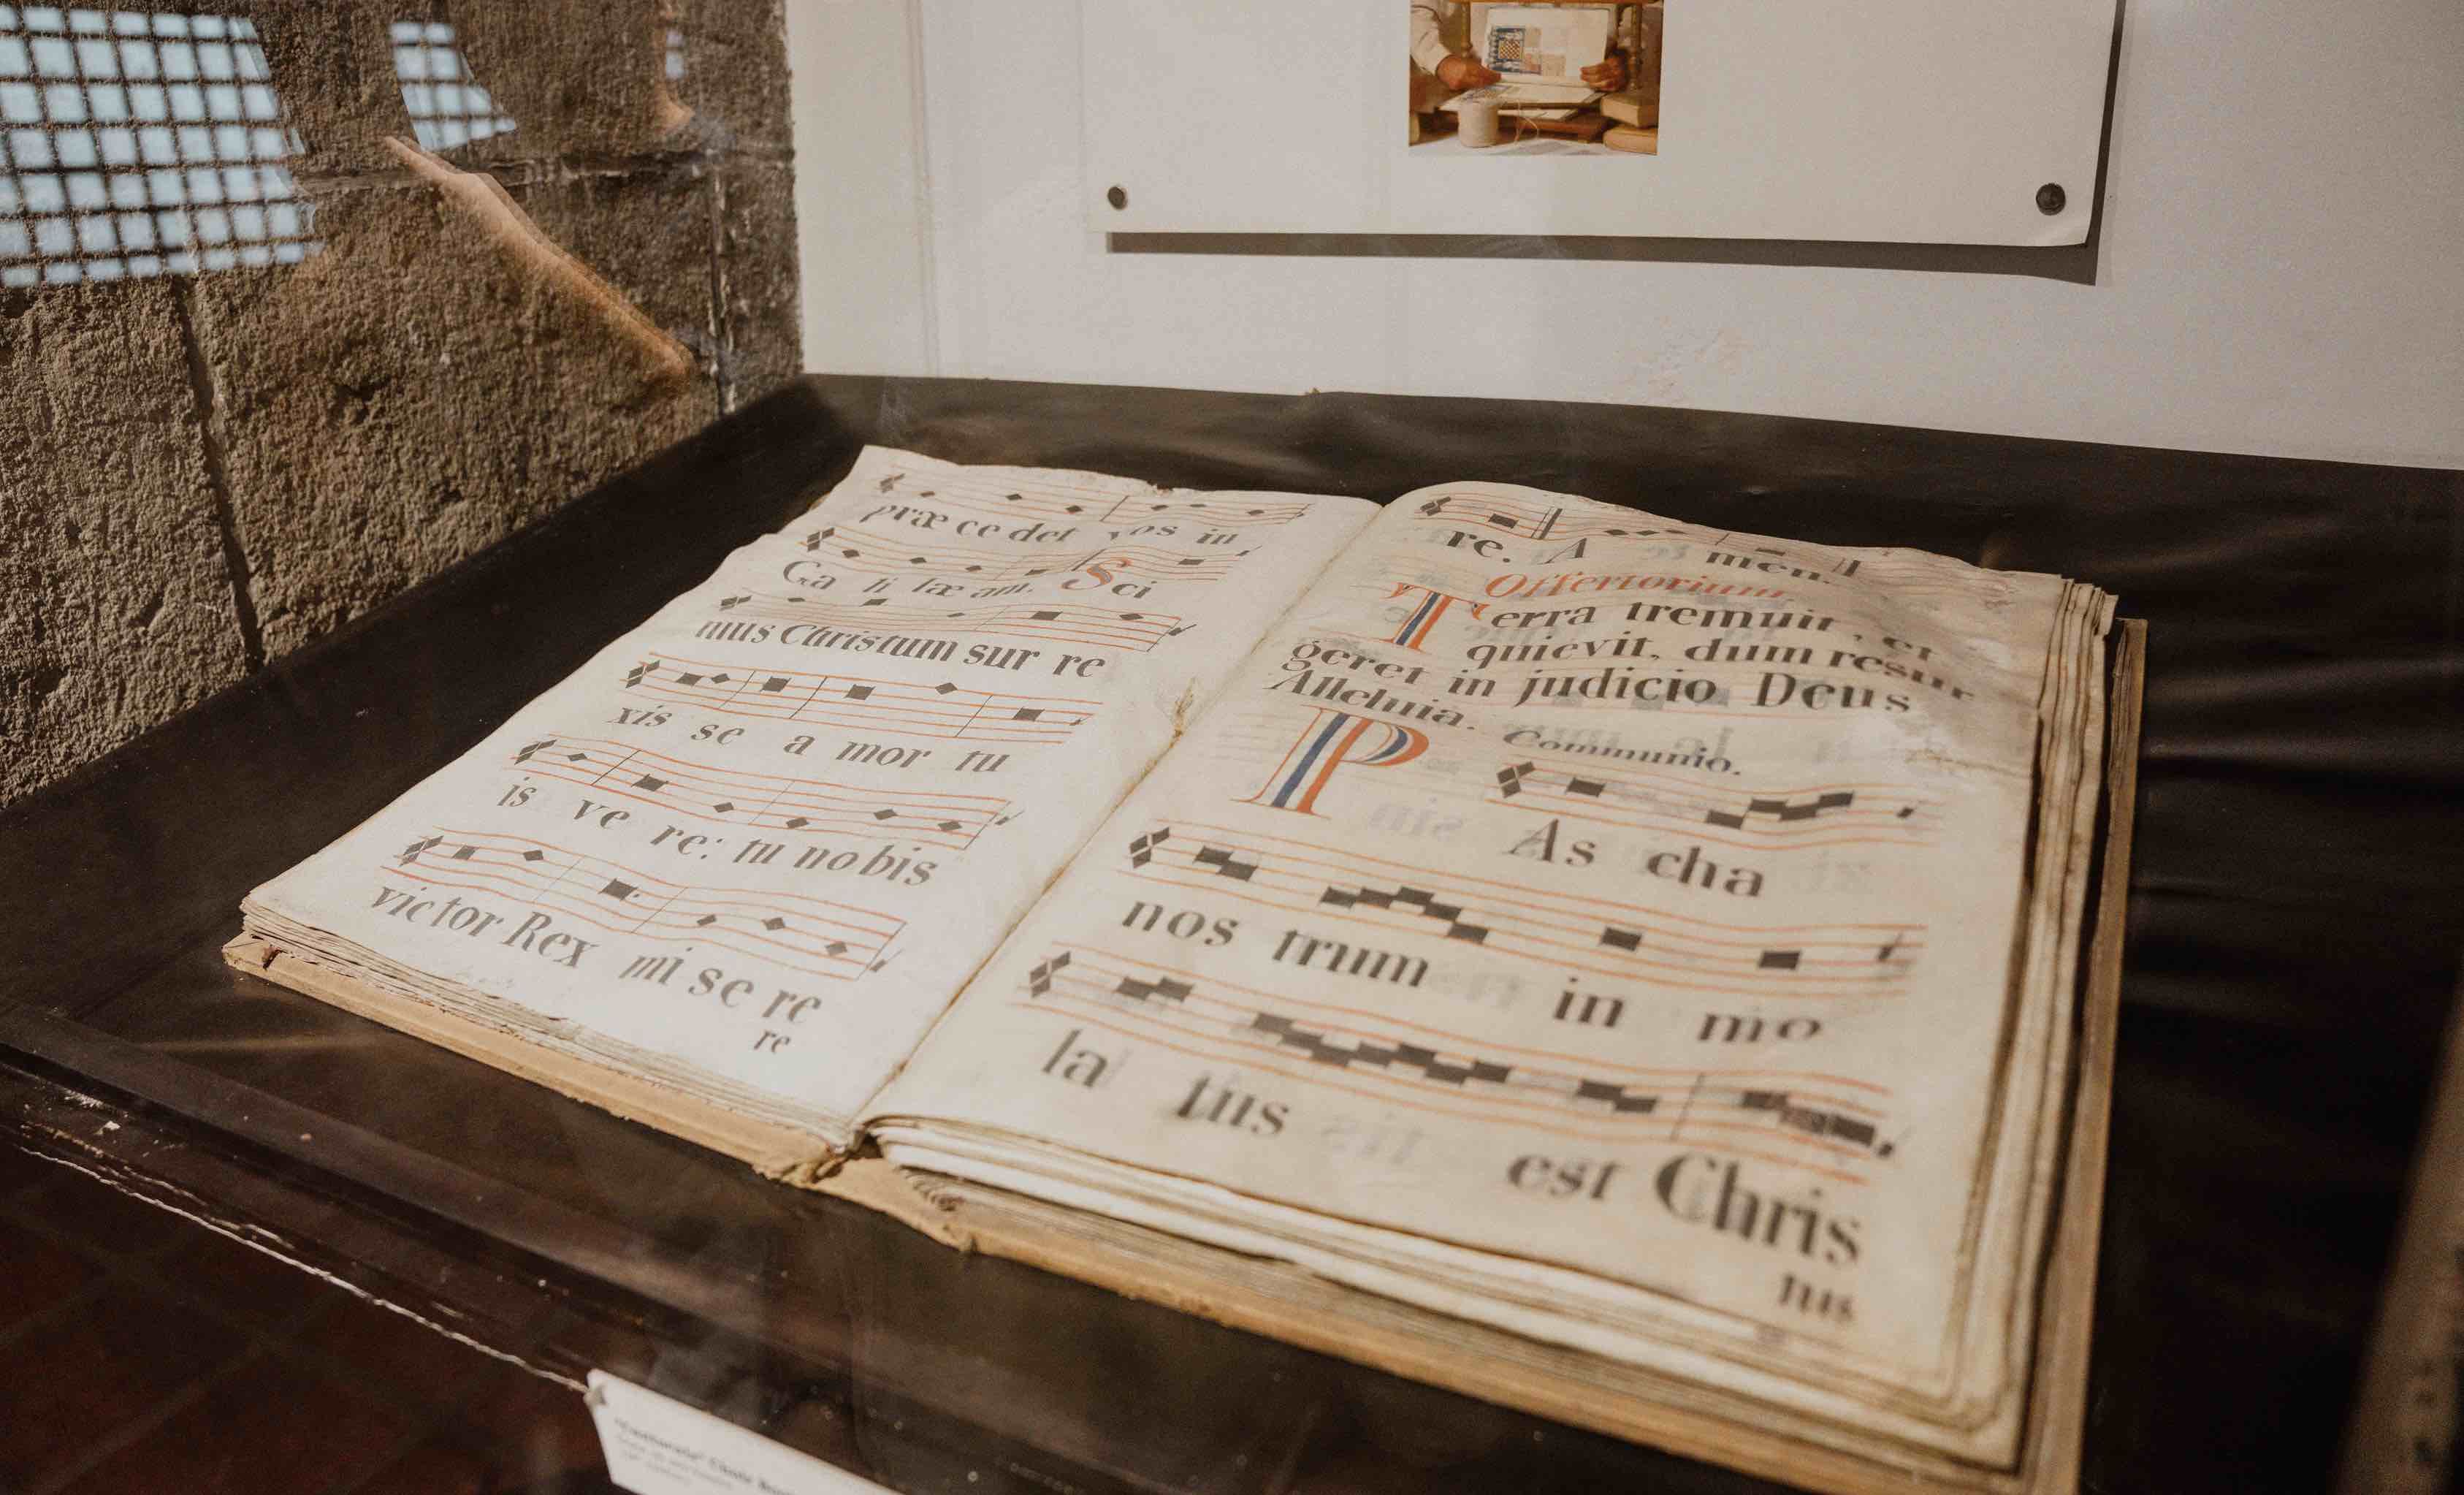 præ ce det vos in
Ga li læ am. Sci
mus Christum sur re
xis se a mor tu
is ve re: tu nobis
victor Rex mi se re
re
re. A men.
Offertorium.
Terra tremuit, et
quievit, dum resur
geret in judicio Deus
Alleluia.
Communio.
P As cha
nos trum in mo
la tus est Chris
tus